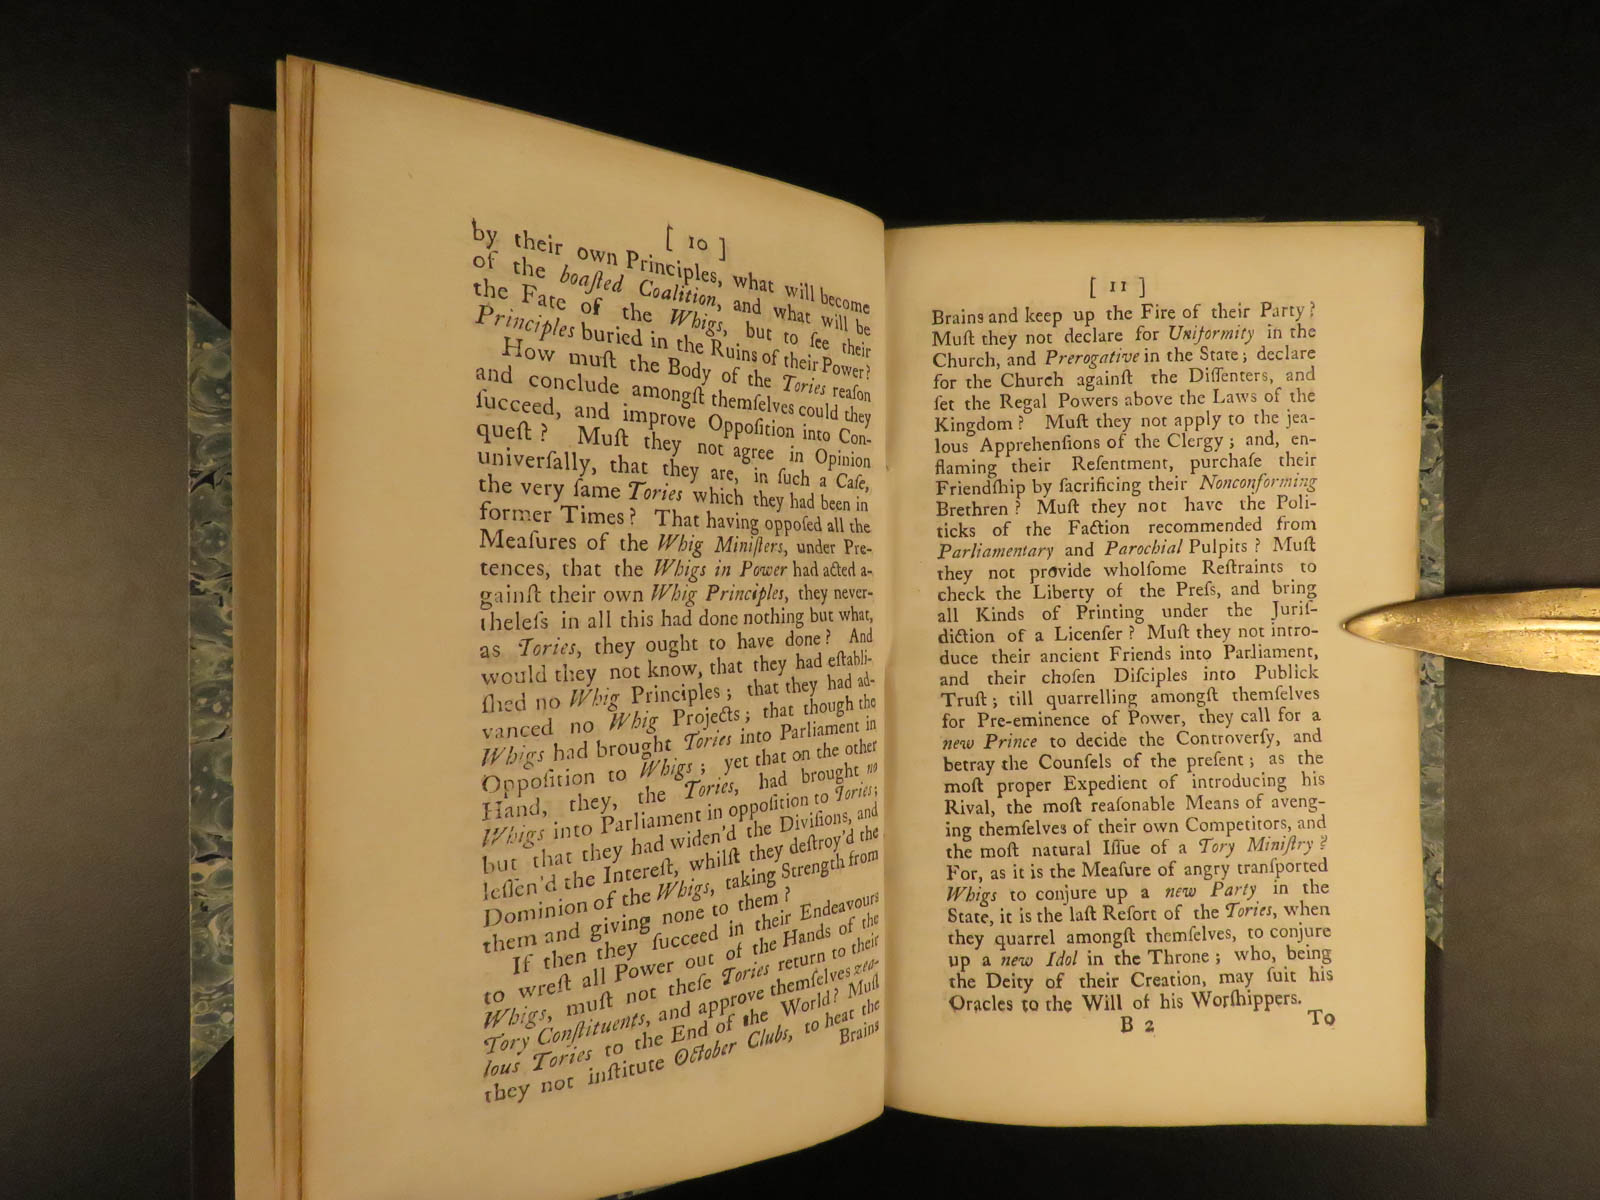 [ 10 ]
by their own Principles, what will become
of the boaſted Coalition, and what will be
the Fate of the Whigs, but to ſee their
Principles buried in the Ruins of their Power?
How muſt the Body of the Tories reaſon
and conclude amongſt themſelves could they
ſucceed, and improve Oppoſition into Con-
queſt? Muſt they not agree in Opinion
univerſally, that they are, in ſuch a Caſe,
the very ſame Tories which they had been in
former Times? That having oppoſed all the
Meaſures of the Whig Miniſters, under Pre-
tences, that the Whigs in Power had acted a-
gainſt their own Whig Principles, they never-
theleſs in all this had done nothing but what,
as Tories, they ought to have done? And
would they not know, that they had eſtabli-
ſhed no Whig Principles; that they had ad-
vanced no Whig Projects; that though the
Whigs had brought Tories into Parliament in
Oppoſition to Whigs; yet that on the other
Hand, they, the Tories, had brought no
Whigs into Parliament in oppoſition to Tories;
but that they had widen'd the Diviſions, and
leſſen'd the Intereſt, whilſt they deſtroy'd the
Dominion of the Whigs, taking Strength from
them and giving none to them?
If then they ſucceed in their Endeavours
to wreſt all Power out of the Hands of the
Whigs, muſt not theſe Tories return to their
Tory Conſtituents, and approve themſelves zea-
lous Tories to the End of the World? Muſt
they not inſtitute October Clubs, to heat the
Brains
[ 11 ]
Brains and keep up the Fire of their Party?
Muſt they not declare for Uniformity in the
Church, and Prerogative in the State; declare
for the Church againſt the Diſſenters, and
ſet the Regal Powers above the Laws of the
Kingdom? Muſt they not apply to the jea-
lous Apprehenſions of the Clergy; and, en-
flaming their Reſentment, purchaſe their
Friendſhip by ſacrificing their Nonconforming
Brethren? Muſt they not have the Poli-
ticks of the Faction recommended from
Parliamentary and Parochial Pulpits? Muſt
they not provide wholſome Reſtraints to
check the Liberty of the Preſs, and bring
all Kinds of Printing under the Juriſ-
diction of a Licenſer? Muſt they not intro-
duce their ancient Friends into Parliament,
and their choſen Diſciples into Publick
Truſt; till quarrelling amongſt themſelves
for Pre-eminence of Power, they call for a
new Prince to decide the Controverſy, and
betray the Counſels of the preſent; as the
moſt proper Expedient of introducing his
Rival, the moſt reaſonable Means of aveng-
ing themſelves of their own Competitors, and
the moſt natural Iſſue of a Tory Miniſtry?
For, as it is the Meaſure of angry tranſported
Whigs to conjure up a new Party in the
State, it is the laſt Reſort of the Tories, when
they quarrel amongſt themſelves, to conjure
up a new Idol in the Throne; who, being
the Deity of their Creation, may ſuit his
Oracles to the Will of his Worſhippers.
B 2 To